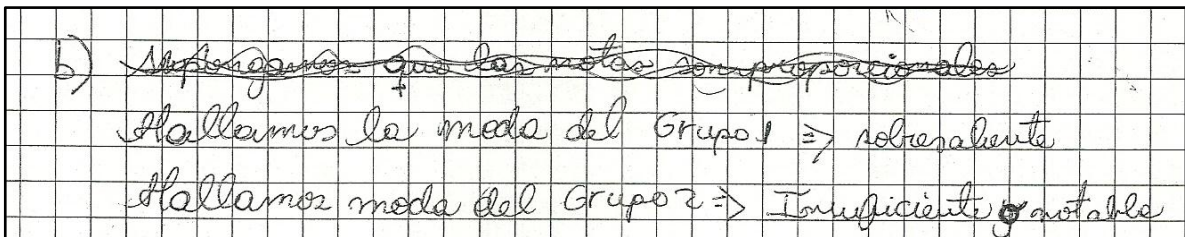 b) Supongamos que las notas son proporcionales
Hallamos la moda del Grupo 1 => sobresaliente
Hallamos moda del Grupo 2 => Insuficiente y notable